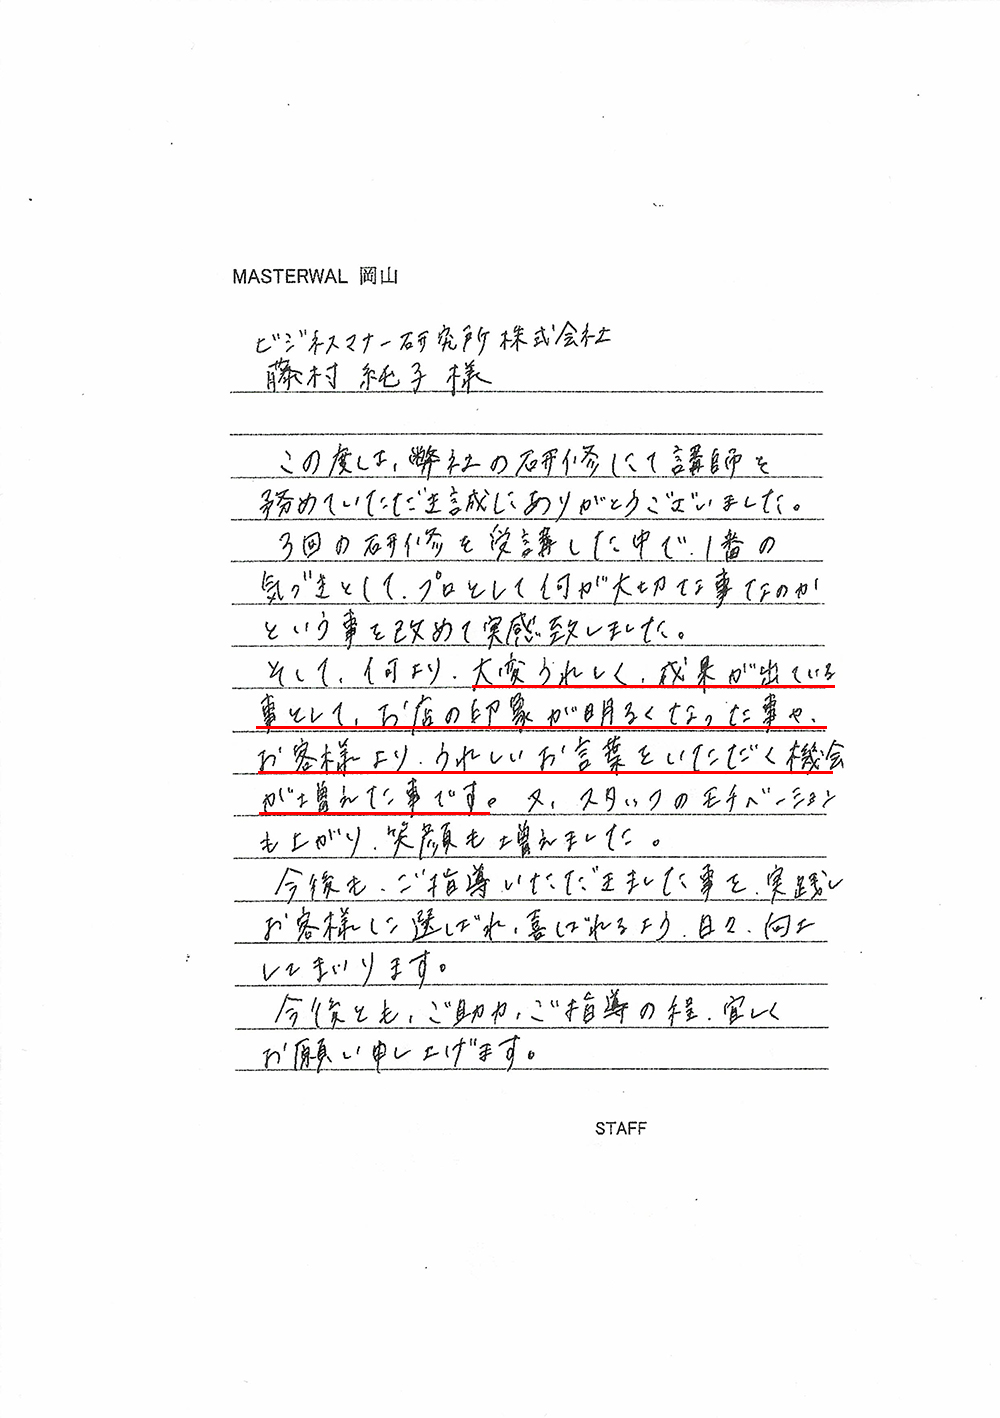 MASTERWAL 岡山
ビジネスマナー研究所株式会社
藤村 純子 様
この度は、弊社の研修にて講師を
務めていただき誠にありがとうございました。
3回の研修を受講した中で、1番の
気づきとして、プロとして何が大切な事なのか
という事を改めて実感致しました。
そして、何より、大変うれしく、成果が出ている
事として、お店の印象が明るくなった事や、
お客様より、うれしいお言葉をいただく機会
が増えた事です。又、スタッフのモチベーション
も上がり、笑顔も増えました。
今後も、ご指導いただきました事を、実践し
お客様に選ばれ、喜ばれるよう、日々、向上
してまいります。
今後とも、ご助力、ご指導の程、宜しく
お願い申し上げます。
STAFF